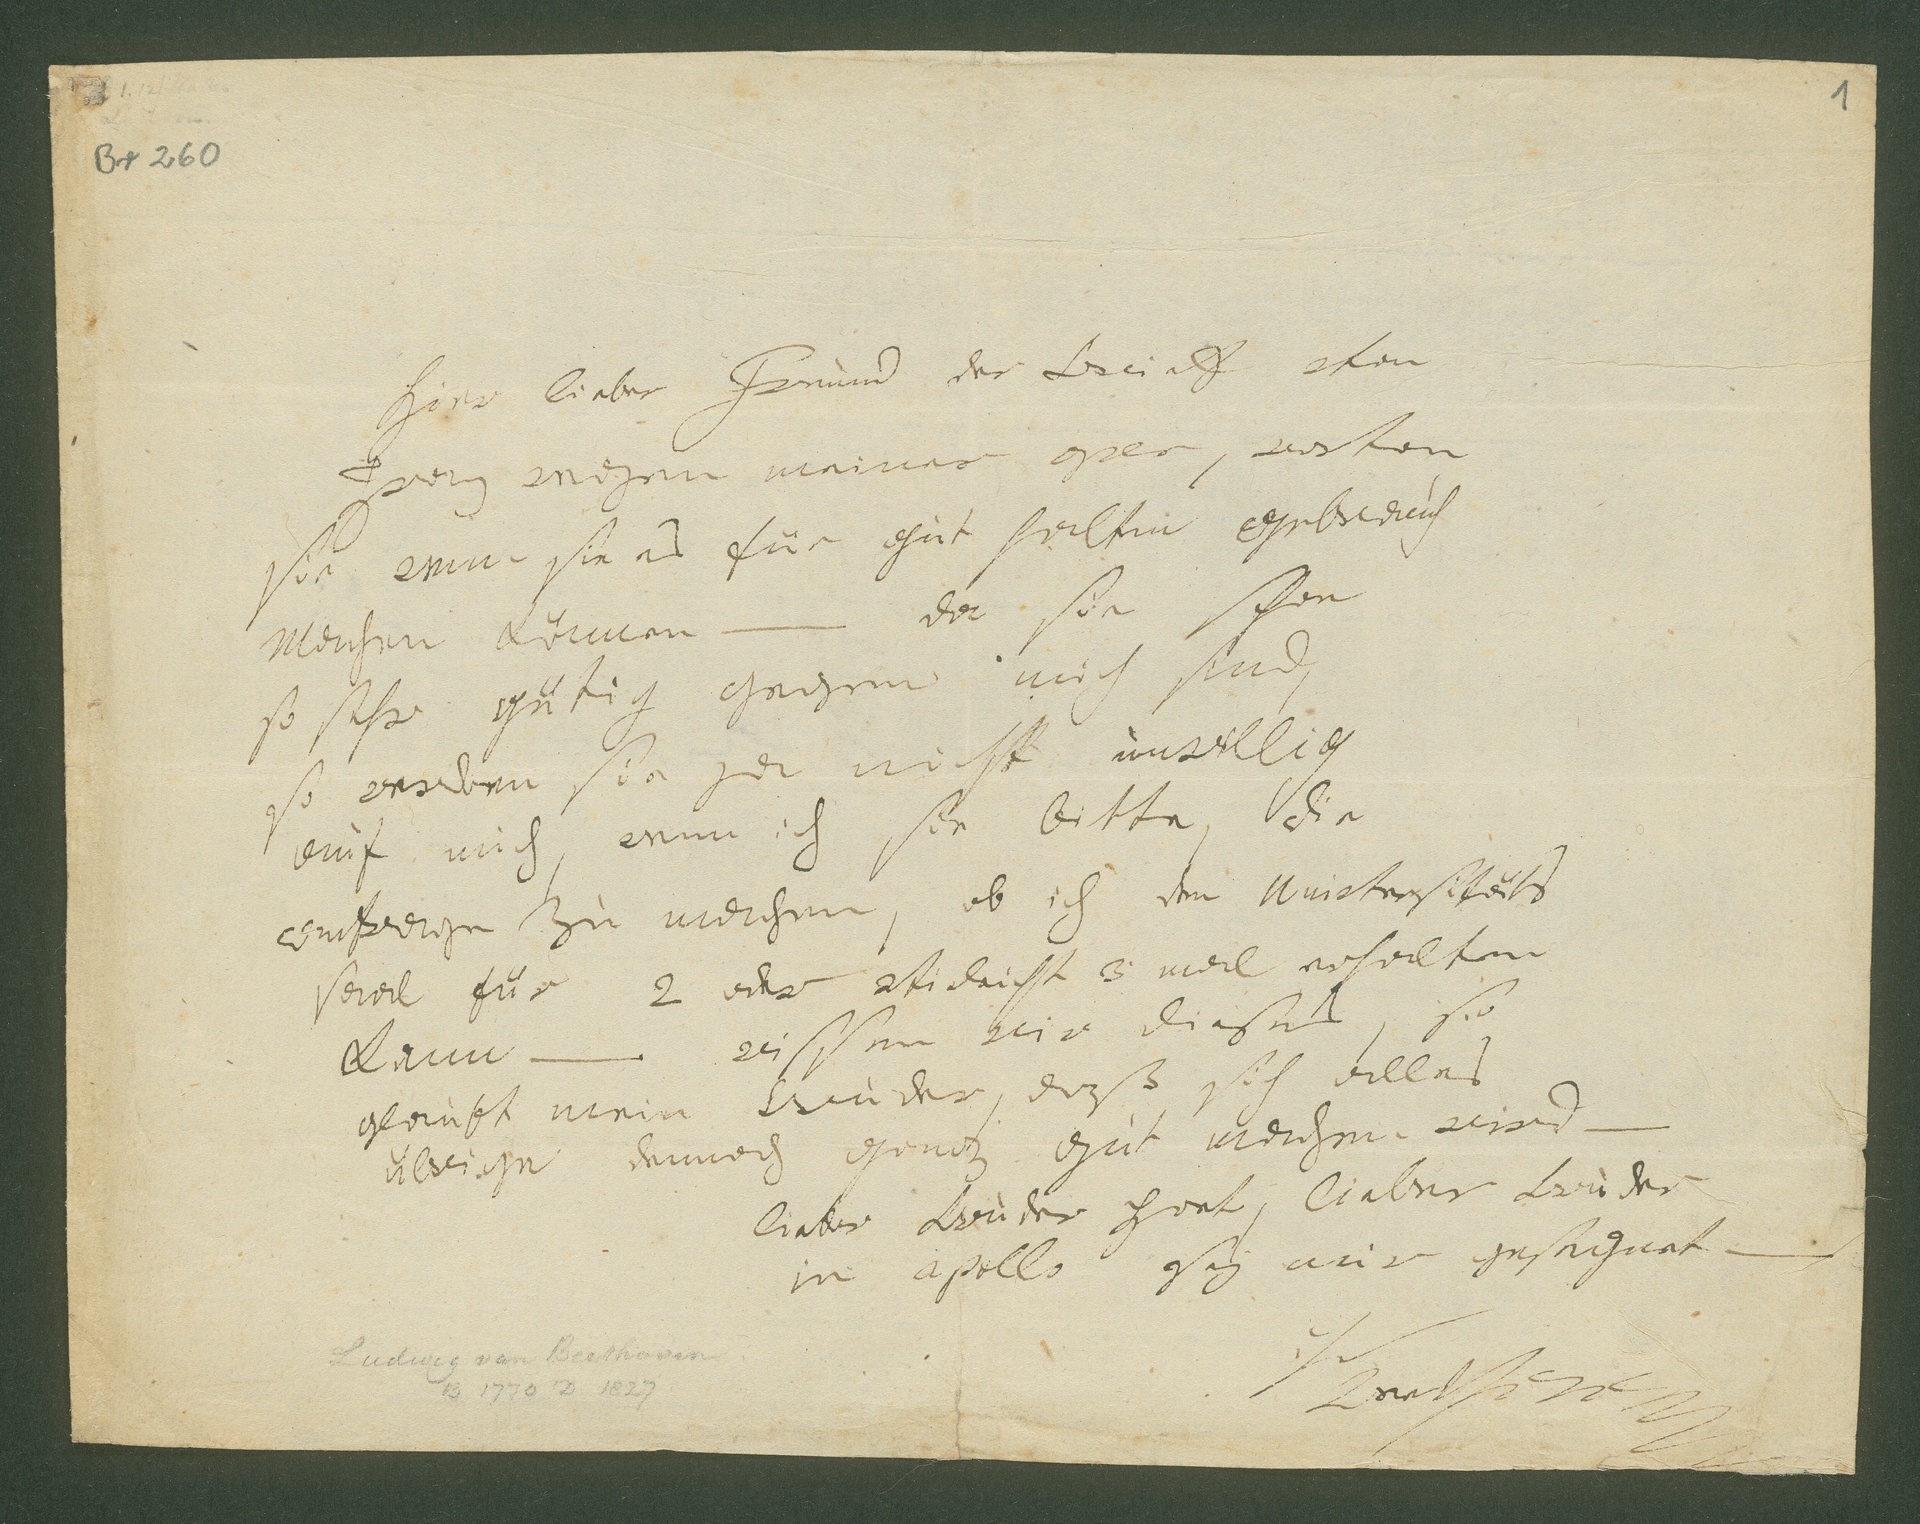 1
Br 260
hier lieber Freund der Brief von
Prag wegen meiner oper, wovon
sie wenn sie es für gut halten gebrauch
machen können — da sie schon
so sehr gütig gegen mich sind,
so werden sie ja nicht unwillig
auf mich, wenn ich sie bitte, die
anfrage zu machen, ob ich den Universitäts
saal für 2 oder vieleicht 3 mal erhalten
kann — wissen wir dieses, so
glaubt mein Bruder, daß sich alles
übrige dennoch ganz gut machen wird —
lieber Bruder lieber Bruder
in apollo sey mir gesegnet —
Beethoven
Ludwig van Beethoven
B 1770 D 1827